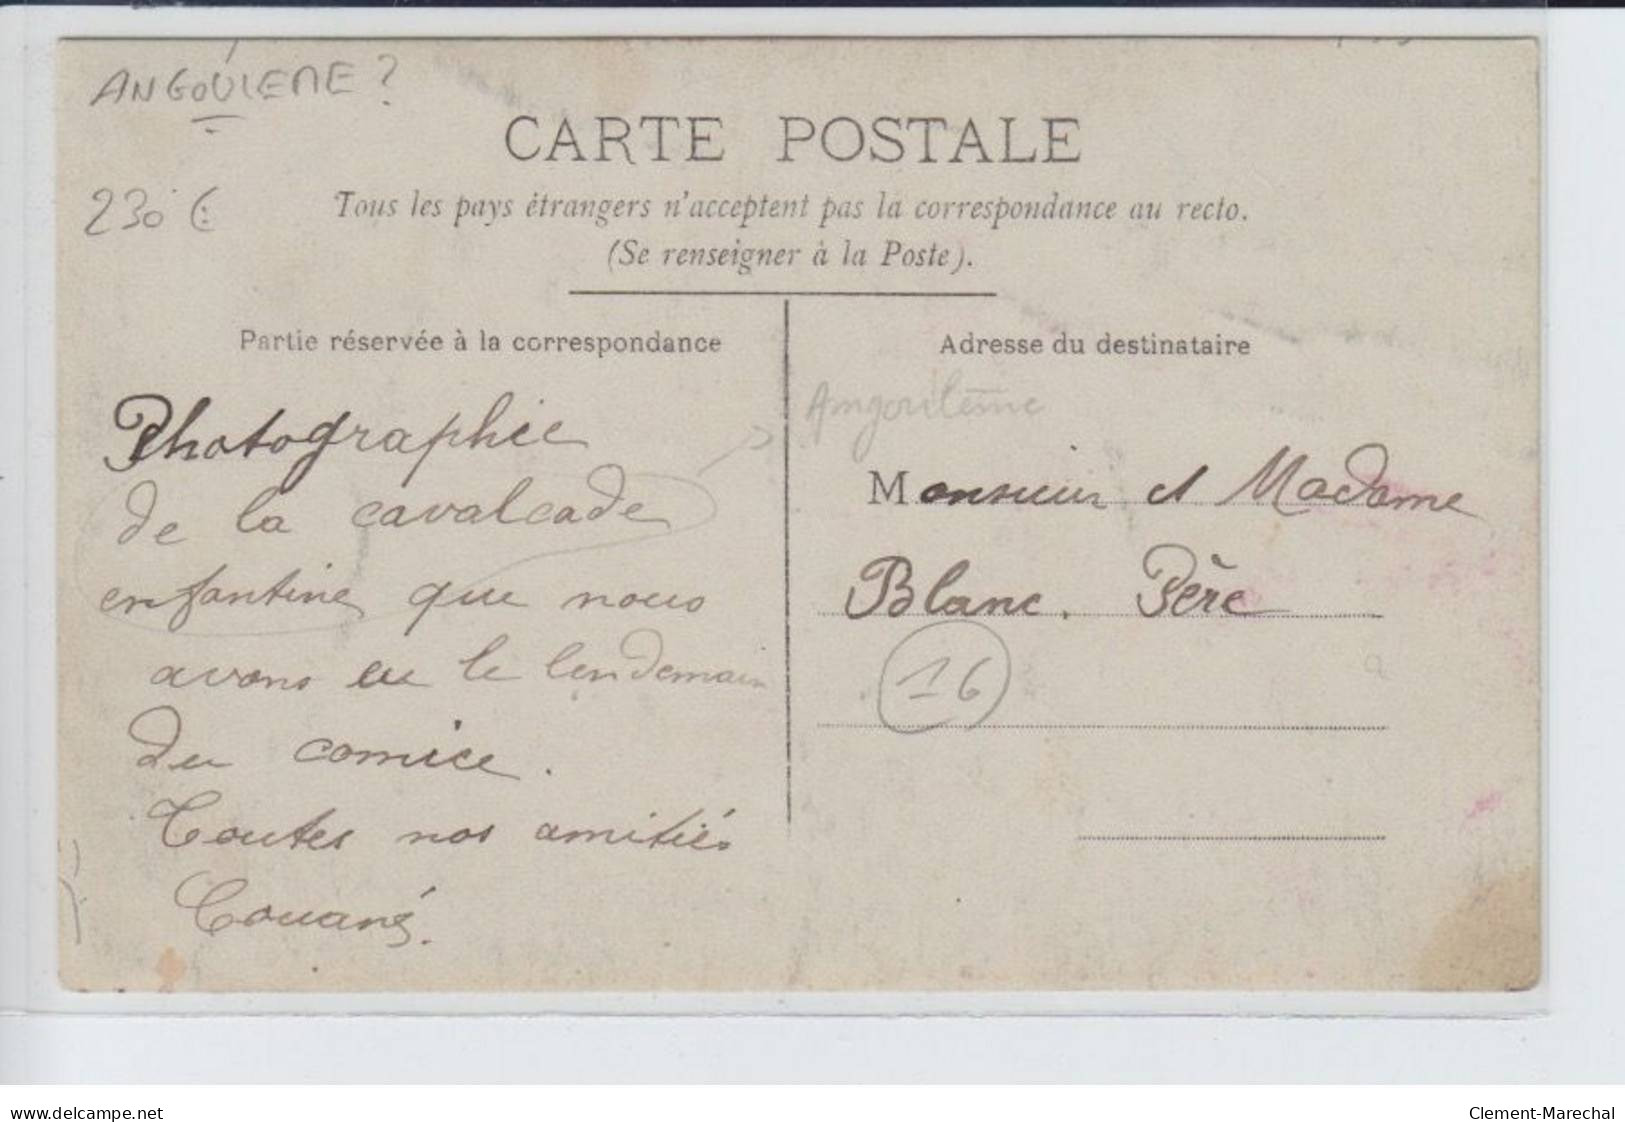 ANGOULEME ?
230 €
CARTE POSTALE
Tous les pays étrangers n'acceptent pas la correspondance au recto.
(Se renseigner à la Poste).
Partie réservée à la correspondance
Photographie
de la cavalcade
enfantine que nous
avons eu le lendemain
du comice.
Toutes nos amitiés
Adresse du destinataire
Angoulême
Monsieur et Madame
Blanc. Père
16
www.delcampe.net
Clement-Marechal